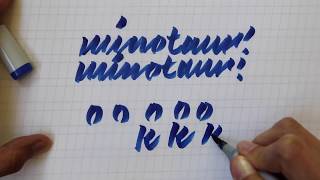 minotaur!
minotaur!
o o o o o
k k k